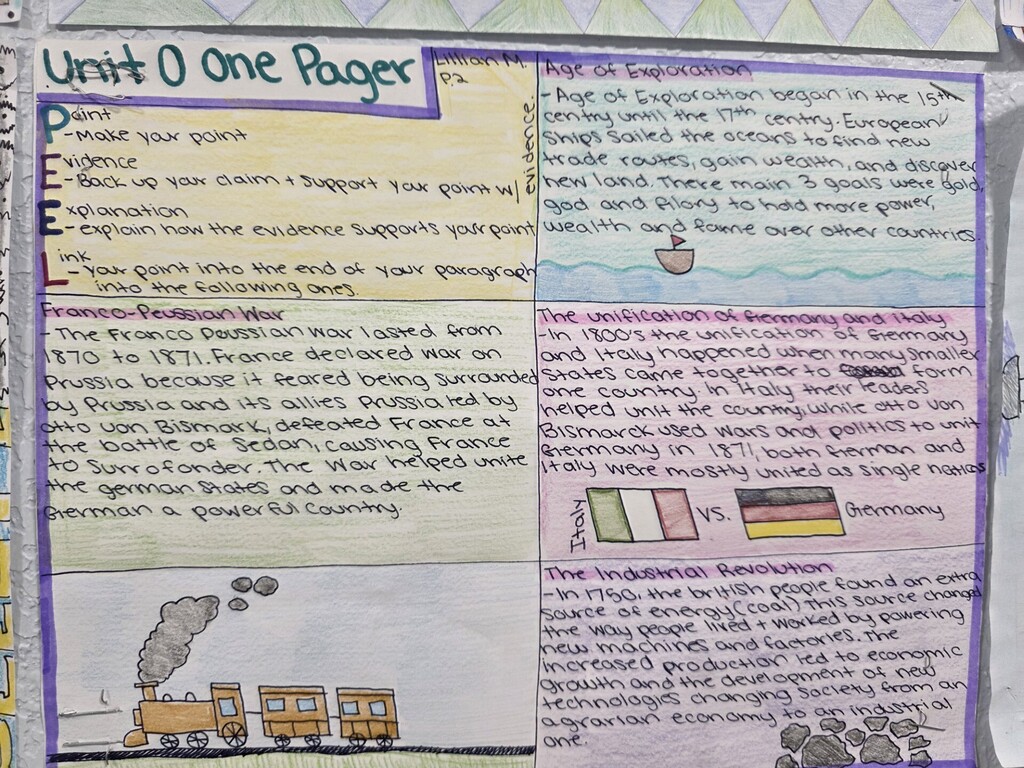 Unit 0 One Pager
Lillian M.
P.2
Point
- Make your point
Evidence
- Back up your claim + support your point w/ evidence.
Explanation
- explain how the evidence supports your point
Link
- your point into the end of your paragraph
into the following ones.
Age of Exploration
- Age of Exploration began in the 15th
centry until the 17th centry. European
ships sailed the oceans to find new
trade routes, gain wealth, and discover
new land. There main 3 goals were gold,
god and glory to hold more power,
wealth and fame over other countries.
Franco-Peussian War
- The Franco Peussian war lasted from
1870 to 1871. France declared war on
Prussia because it feared being surrounded
by Prussia and its allies Prussia led by
Otto von Bismark, defeated France at
the battle of Sedan, causing France
to surrofonder. The War helped unite
the german states and made the
German a powerful country.
The unification of Germany and Italy
- In 1800's the unification of Germany
and Italy happened when many smaller
states came together to form
one country. In Italy their leades
helped unit the country, while otto von
Bismarck used wars and politics to unit
Germany in 1871, both German and
Italy were mostly united as single natios
Italy
VS.
Germany
The Industrial Revolution
- In 1750, the british people found an extra
source of energy (coal) This source changed
the way people lived + worked by powering
new machines and factories. The
increased production led to economic
growth and the development of new
technologies changing society from an
agrarian economy to an industrial
one.